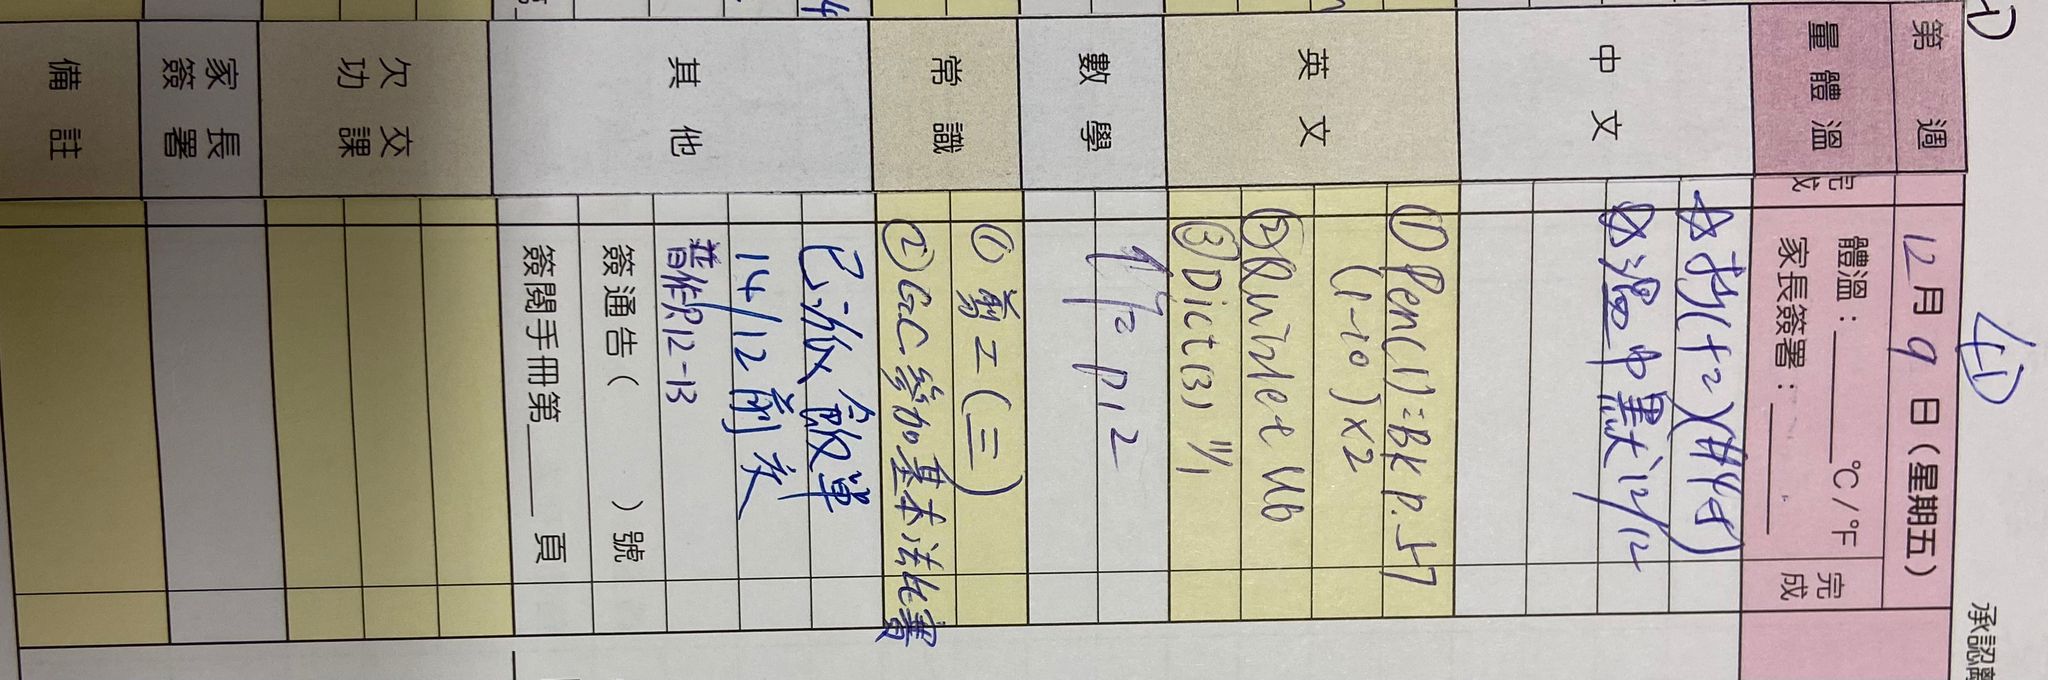 第 週
12月9日(星期五)
量體溫
完成
體溫：______°C/°F
家長簽署：______
完成
中文
溫中默12/12
英文
① Pen(1)=Bk p.57
(1-10)×2
② Quizlet U6
③ Dict(3) 1/1
數學
P12
常識
① 剪工(三)
② GC參加基本法比賽
其他
已派飯單
14/12前交
普作P.12-13
簽通告( )號
簽閱手冊第____頁
欠交功課
家長簽署
備註